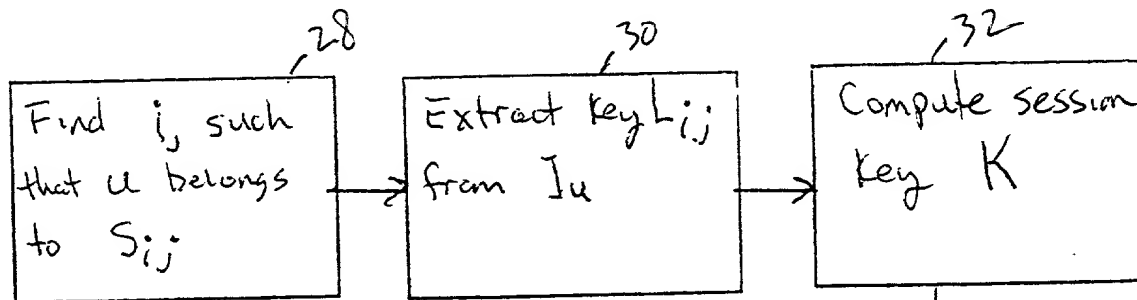 28
Find i, such
that u belongs
to Sij
30
Extract key Lij
from Iu
32
Compute session
key K